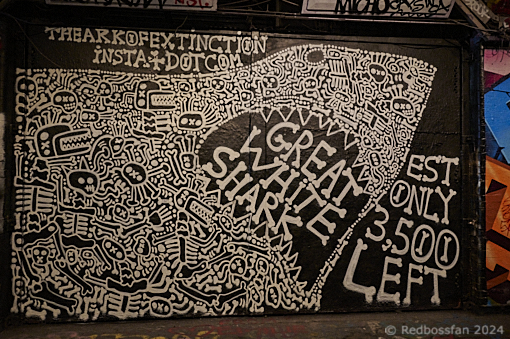 THEARKOFEXTINCTION
INSTA+DOTCOM
GREAT
WHITE
SHARK
EST
ONLY
3,500
LEFT
© Redbossfan 2024